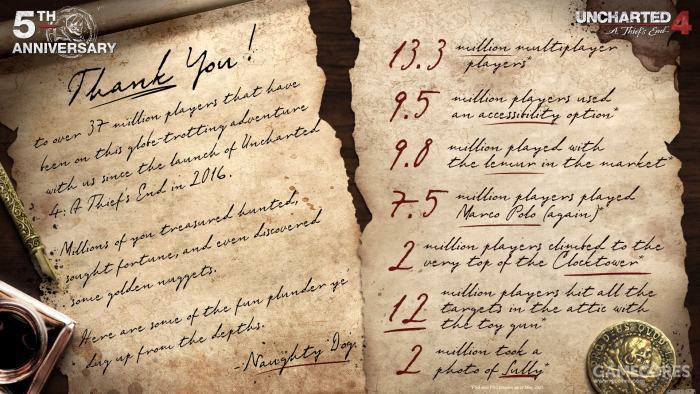 5TH
ANNIVERSARY
Thank You!
to over 37 million players that have
been on this globe-trotting adventure
with us since the launch of Uncharted
4: A Thief's End in 2016.
Millions of you treasured hunted,
sought fortune, and even discovered
some golden nuggets.
Here are some of the fun plunder ye
dug up from the depths.
-Naughty Dog
UNCHARTED 4
A Thief's End
13.3 million multiplayer
players*
9.5 million players used
an accessibility option*
9.8 million played with
the lemur in the market*
7.5 million players played
Marco Polo (again)*
2 million players climbed to the
very top of the Clocktower*
12 million players hit all the
targets in the attic with
the toy gun*
2 million took a
photo of Sully*
GAMECORES